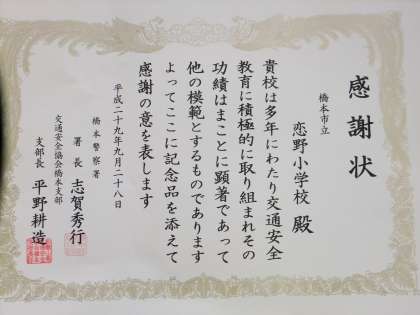 感謝状
橋本市立
恋野小学校 殿
貴校は多年にわたり交通安全
教育に積極的に取り組まれその
功績はまことに顕著であって
他の模範とするものであります
よってここに記念品を添えて
感謝の意を表します
平成二十九年九月二十八日
橋本警察署
署長 志賀秀行
交通安全協会橋本支部
支部長 平野耕造